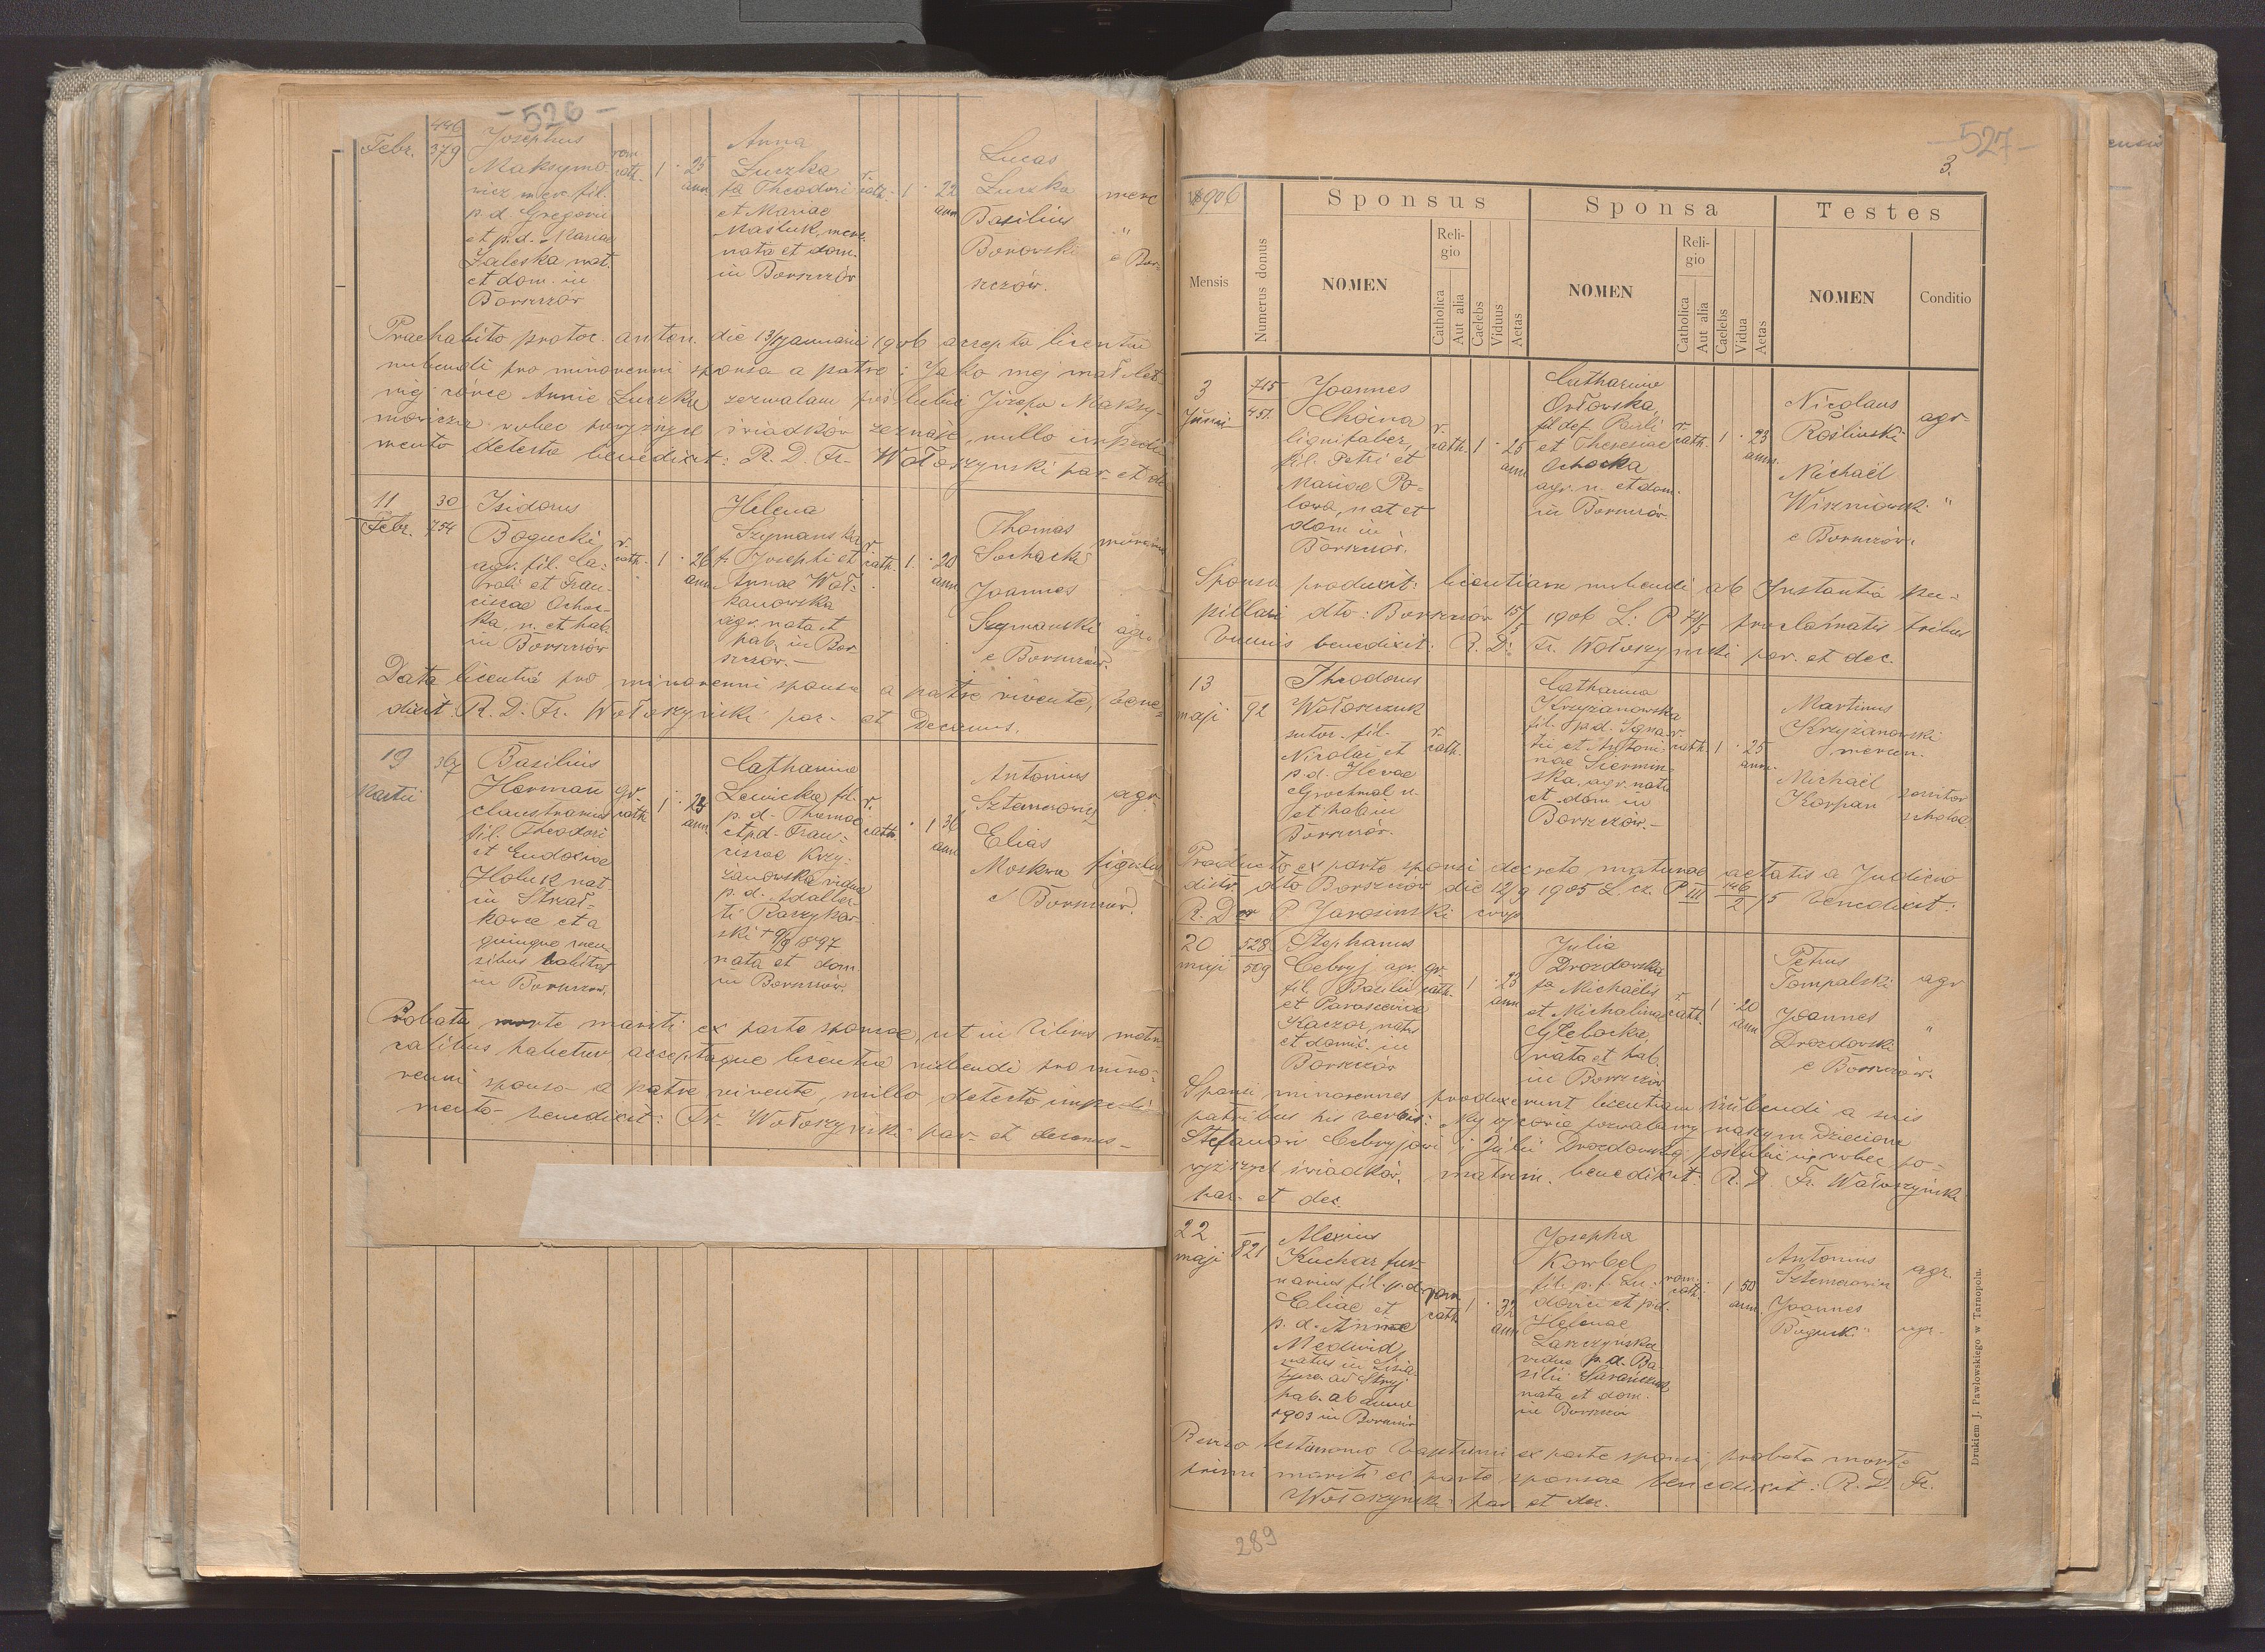 - 526 -
Febr.
446
379
Josephus
Maksymo-
wicz merc. fil.
p. d. Gregorii
et p. d. Mariae
Zaleska nat.
et dom. in
Borszczów
rom.
cath.
1
25
ann.
Anna
Luczka
fa Theodori
et Mariae
Masluk, merc.
nata et dom.
in Borszczów
r.
cath.
1
22
ann
Lucas
Luczka
Basilius
Borowski
e Bor-
szczów.
merc
"
Praehabito protoc. anton. die 13/ januarii 1906 accepta licentia
nubendi pro minorenni sponsa a patre: Jako mej małolet-
niej córce Annie Luczka zezwalam poślubić Józefa Maksy-
mowicza wobec powyższych świadków zeznaje, nullo impedi-
mento detecto benedixit: R. D. Fr. Wołoszyński par. et de
11
Febr.
30
754
Isidorus
Bogucki
agr. fil. Ca-
roli et Fran-
ciscae Ochoc-
ka, n. et hab.
in Borszczów
r.
cath.
1
26
ann
Helena
Szymanska
f. Josephi et
Annae Woł-
kanowska
agr. nata et
hab. in Bor
szczów. -
r.
cath.
1
20
ann
Thomas
Sochacki
Joannes
Szymanski
e Borszczów.
agr.
Data licentia pro minorenni sponsa a patre vivente, bene-
dixit: R. D. Fr. Wołoszyński par. et Decanus.
19
Martii
367
Basilius
Herman
claustrarius
fil. Theodori
et Eudociae
Holuk nat
in Strzał-
kowce et a
quinque men-
sibus habitat
in Borszczów.
gr.
cath
1
ann.
Catharina
Lewicka fil.
p. d. Thomae
et p. d. Fran-
ciscae Krzy-
żanowska vidua
p. d. Adalber-
ti Raczykow-
ski + 1897
nata et dom.
in Borszczów.
r.
cath
1
36
ann
Antonius
Sztemerowicz
Elias
Moskwa
e Borszczów.
agr.
figulus
Probata morte mariti ex parte sponsae, ut in libris metri-
calibus habetur, acceptaque licentia nubendi pro mino-
renni sponso a patre vivente, nullo detecto impedi-
mento benedixit: Fr. Wołoszyński par. et decanus -
- 527 -
3.
1906
Sponsus
Sponsa
Testes
Mensis
Numerus domus
NOMEN
Reli-
gio
Catholica
Aut alia
Caelebs
Viduus
Aetas
NOMEN
Reli-
gio
Catholica
Aut alia
Caelebs
Vidua
Aetas
NOMEN
Conditio
3
Junii
715
451
Joannes
Choina
lignifaber,
fil. Petri et
Mariae Po-
lowa, nat et
dom in
Borszczów.
r.
cath.
1
25
ann
Catharina
Orłowska,
fil def. Pauli
et Theresiae
Ochocka
agr. n. et dom.
in Borszczów
r.
cath.
1
23
ann.
Nicolaus
Rośliński
Michaël
Wiszniowski
e Borszczów.
agr.
"
Sponsa produxit: licentiam nubendi ab Instantia pu-
pillari dto: Borszczów 15/5 1906 L: P 74/5 proclamatis tribus
bannis benedixit: R. D. Fr. Wołoszyński par. et dec.
13
maji
92
Theodorus
Wołoszczuk
sutor. fil.
Nicolai et
p. d. Hevae
Grochmal n.
et hab in
Borszczów.
r.
cath.
Catharina
Krzyżanowska
fil. p. d. Igna-
tii et Antoni-
nae Siermin-
ska, agr. nata
et dom in
Borszczów. -
r.
cath
1
25
ann.
Martinus
Krzyżanowski
mercen.
Michaël
Karpan
servitor
scholae
Producto ex parte sponsi decreto maturae aetatis a Judicio
distr. dto Borszczów die 12/9 1905 L. cz. P III 146/5 2 benedixit:
R. D P Jarosinski coop
20
maji
528
509
Stephanus
Cebryj agr.
fil. Basilii
et Parasceviae
Kaczor, natus
et domic. in
Borszczów
gr.
cath.
1
23
ann
Julia
Drozdowska
fa Michaëlis
et Michalinae
Głębocka,
nata et hab.
in Borszczów
r.
cath.
1
20
ann
Petrus
Tompalski
Joannes
Drozdowski
e Borszczów.
agr
"
Sponsi minorennes produxerunt licentiam nubendi a suis
patribus his verbis: My ojcowie pozwalamy naszym dzieciom
Stefanowi Cebryjowi i Julii Drozdowskiej poślubić się wobec po-
wyższych świadków, matrim. benedixit: R. D Fr. Wołoszyński
par. et dec.
22
maji
821
Alexius
Kuchar fur-
narius fil. p. d.
Eliae et
p. d. Annae
Medwid,
natus in Lisia-
tycze ad Stryj
hab. ab anno
1903 in Borszczów
rom.
cath
1
32
ann
Josepha
Kowbel
fil. p. f. Lu-
dovici et p. d.
Helenae
Laszczyńska
vidua p. d. Ba-
silii Saranczuk
nata et dom.
in Borszczów
rom.
cath.
1
50
ann.
Antonius
Sztemerowicz
Joannes
Bogucki
agr.
agr.
testimonio baptismi ex parte sponsi, probata morte
primi mariti ex parte sponsae benedixit: R. D. Fr.
Wołoszyński par et dec.
Drukiem J. Pawłowskiego w Tarnopolu.
289